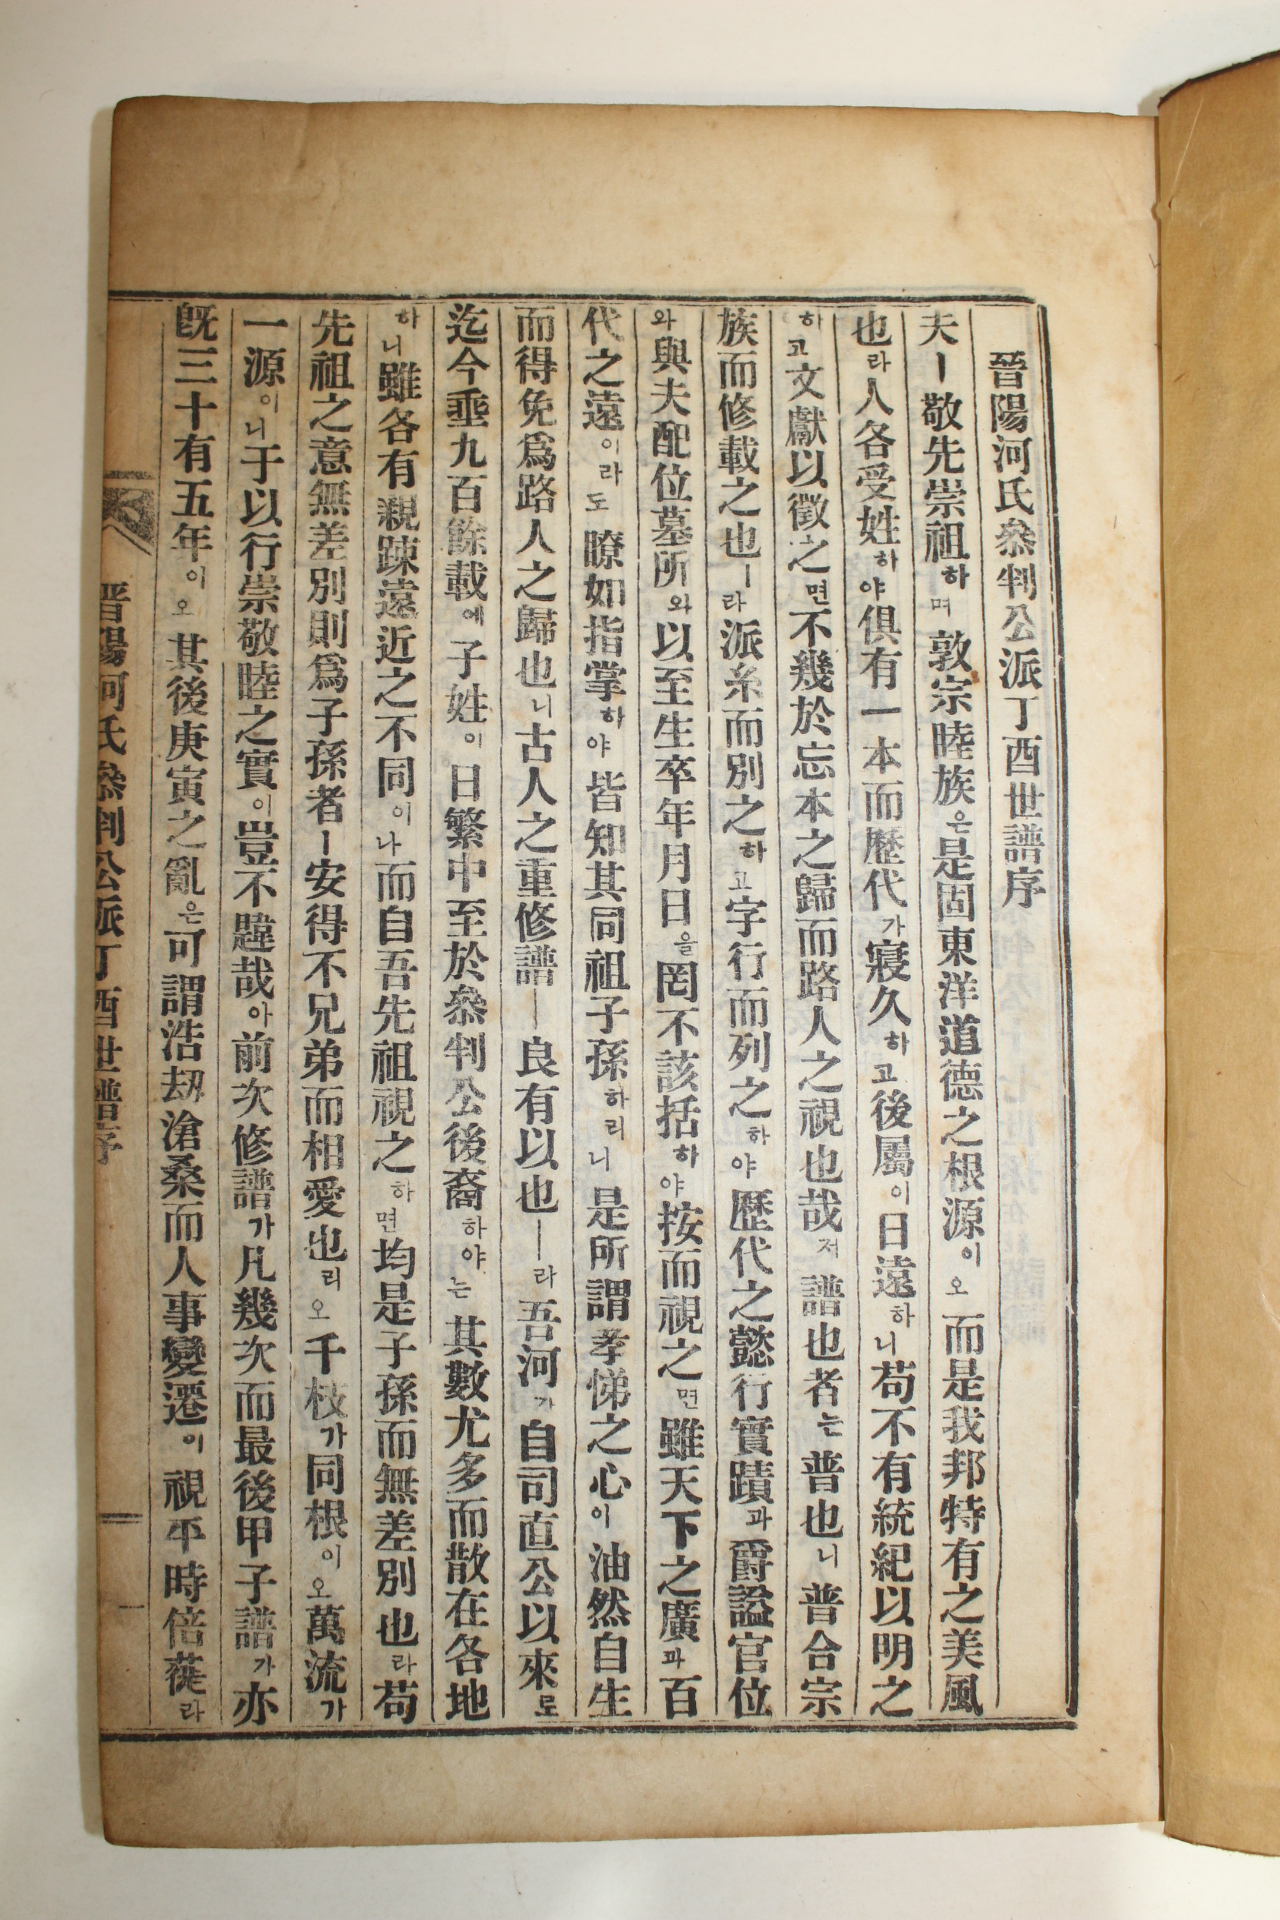 晉陽河氏叅判公派丁酉世譜序
夫ㅣ敬先崇祖하며敦宗睦族은是固東洋道德之根源이오而是我邦特有之美風
也라人各受姓하야俱有一本而歷代가寢久하고後屬이日遠하니苟不有統紀以明之
하고文獻以徵之면不幾於忘本之歸而路人之視也哉져譜也者는普也니普合宗
族而修載之也ㅣ라派系而別之하고字行而列之하야歷代之懿行實蹟과爵諡官位
와與夫配位墓所와以至生卒年月日을罔不該括하야按而視之면雖天下之廣과百
代之遠이라도瞭如指掌하야皆知其同祖子孫하리니是所謂孝悌之心이油然自生
而得免爲路人之歸也니古人之重修譜ㅣ良有以也ㅣ라吾河가自司直公以來로
迄今垂九百餘載에子姓이日繁中至於叅判公後裔하야는其數尤多而散在各地
하니雖各有親踈遠近之不同이나而自吾先祖視之하면均是子孫而無差別也라苟
先祖之意無差別則爲子孫者ㅣ安得不兄弟而相愛也리오千枝가同根이오萬流가
一源이니于以行崇敬睦之實이豈不韙哉아前次修譜가凡幾次而最後甲子譜가亦
旣三十有五年이오其後庚寅之亂은可謂浩劫滄桑而人事變遷이視平時倍蓰라
晋陽河氏叅判公派丁酉世譜序
一